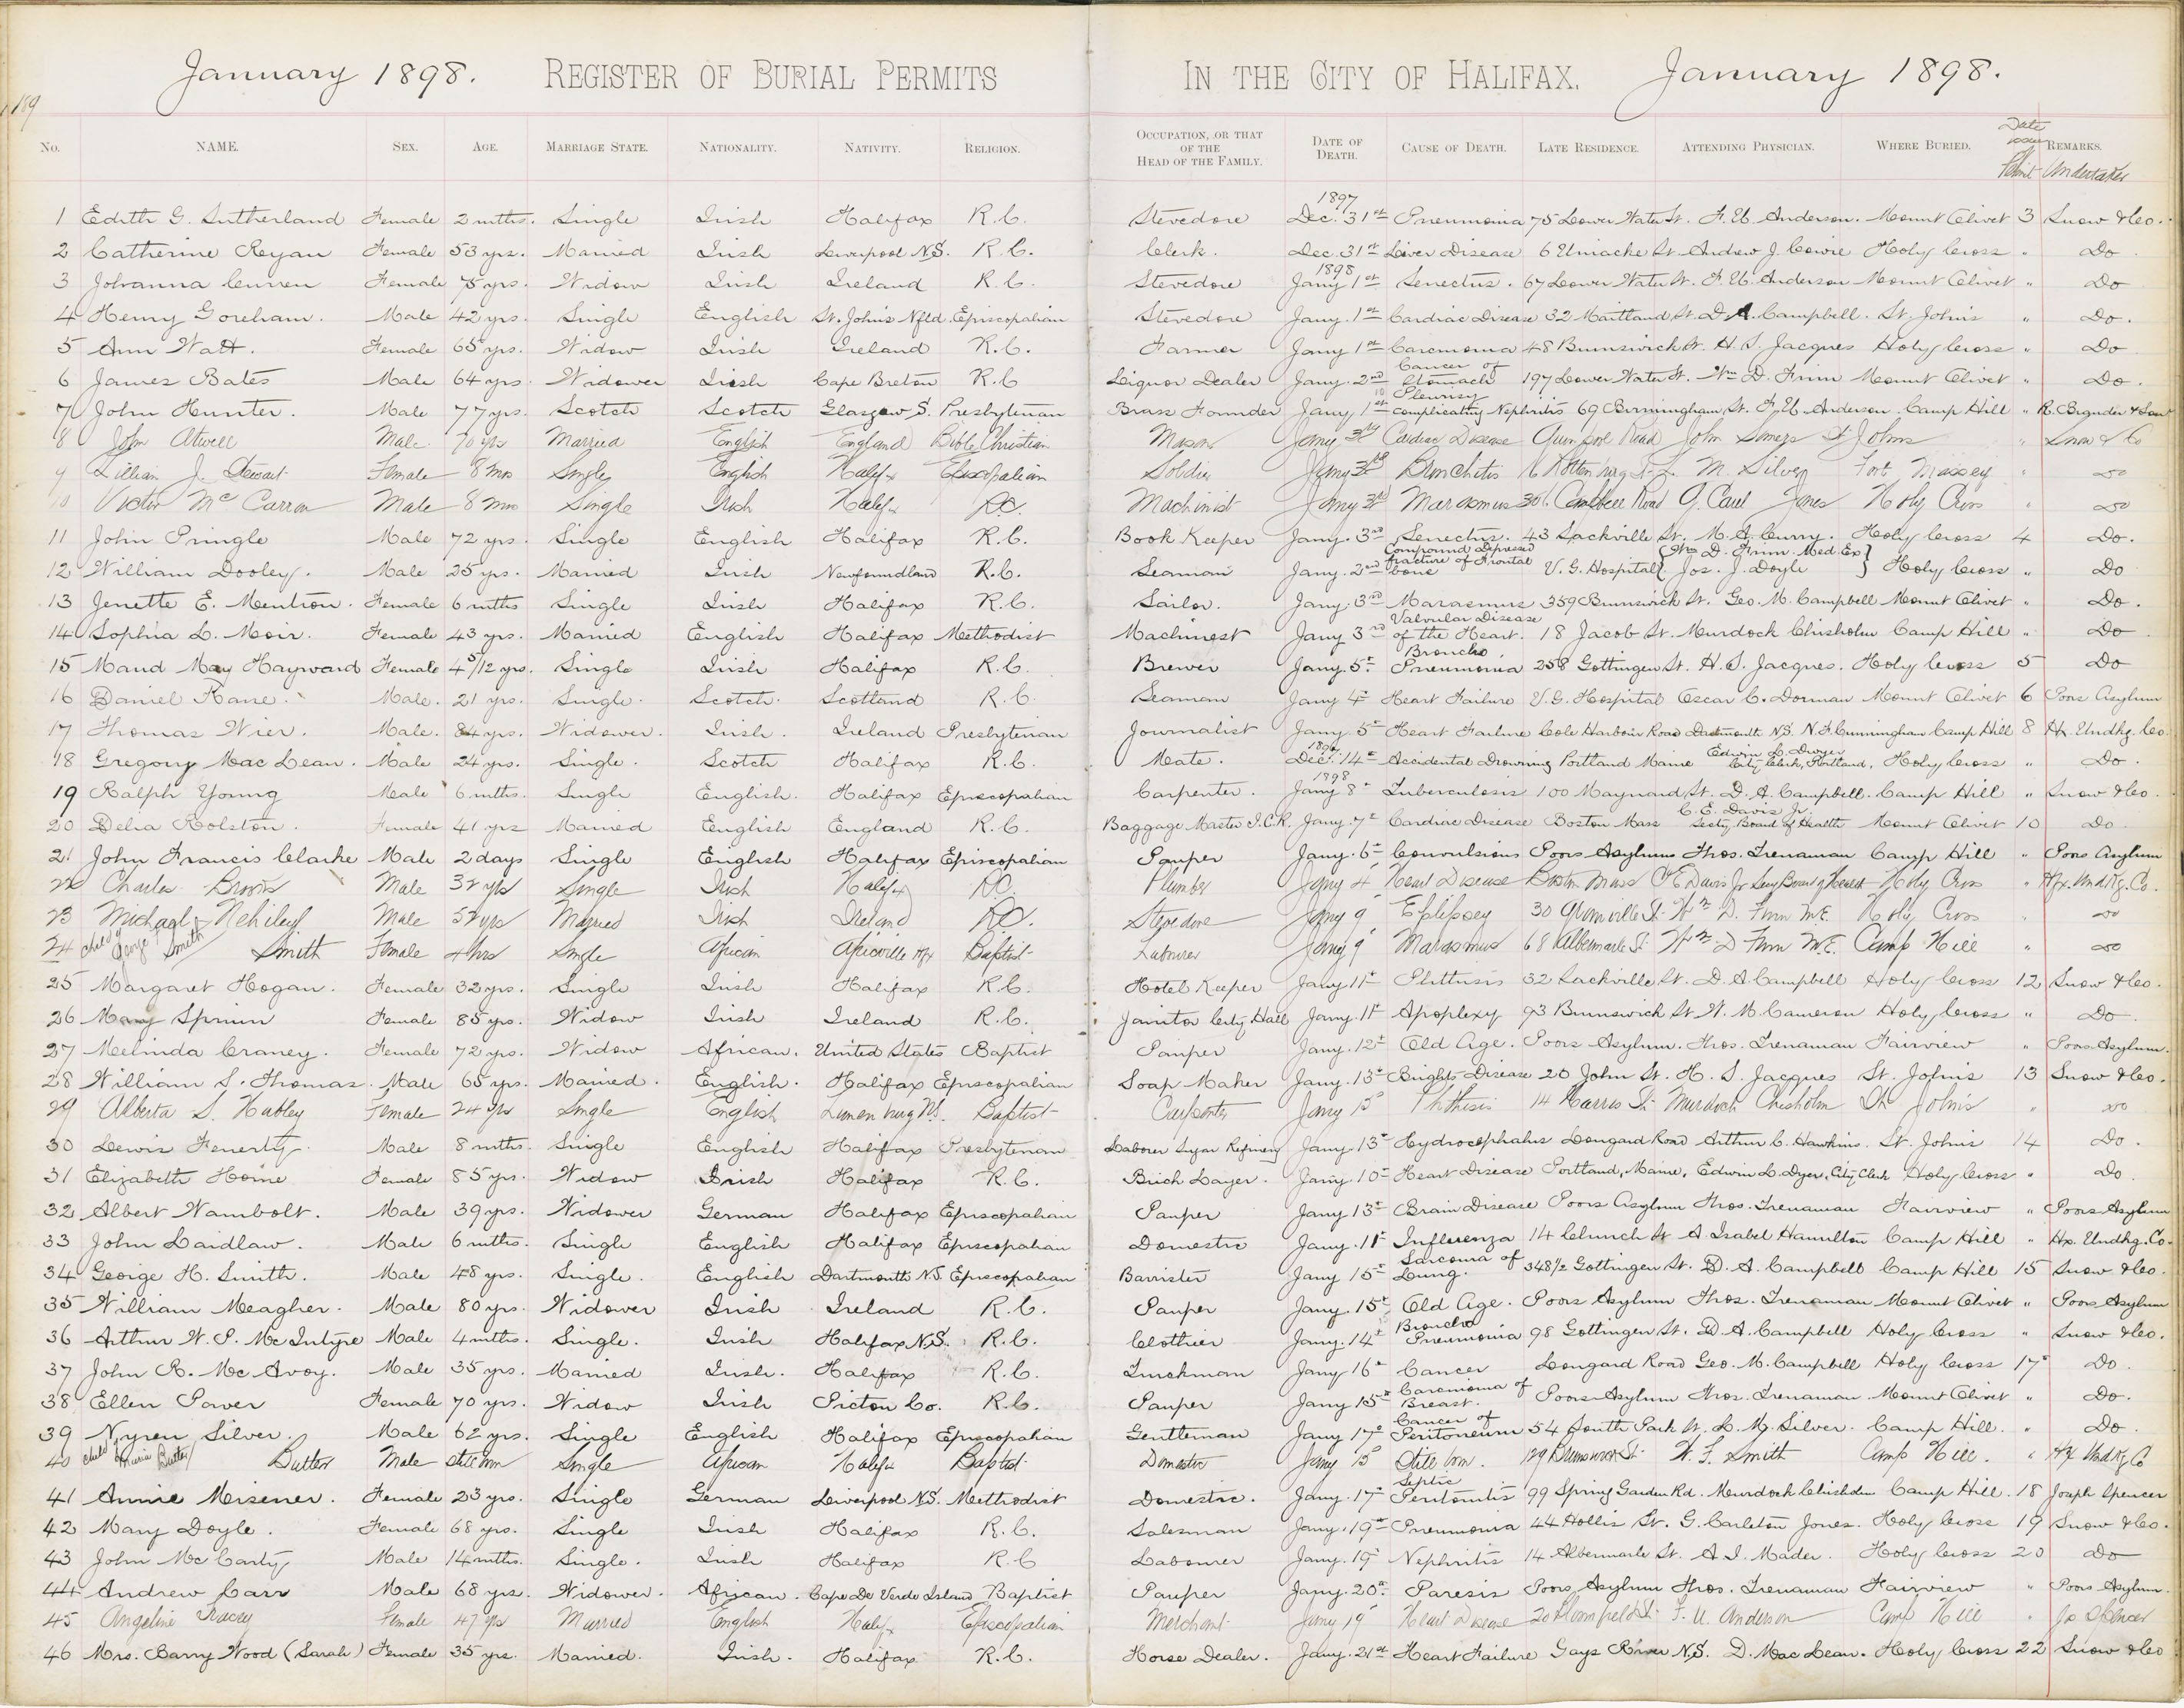 January 1898. REGISTER OF BURIAL PERMITS IN THE CITY OF HALIFAX. January 1898.
189
No. NAME. SEX. AGE. MARRIAGE STATE. NATIONALITY. NATIVITY. RELIGION. OCCUPATION, OR THAT OF THE HEAD OF THE FAMILY. DATE OF DEATH. CAUSE OF DEATH. LATE RESIDENCE. ATTENDING PHYSICIAN. WHERE BURIED. Date REMARKS. Undertaker
1 Edith G. Sutherland Female 2 mths. Single Irish Halifax R.C. Stevedore 1897 Dec. 31st Pneumonia 75 Lower Water St. F. U. Anderson. Mount Olivet 3 Snow & Co.
2 Catherine Ryan Female 53 yrs. Married Irish Liverpool N.S. R.C. Clerk. Dec. 31st Liver Disease 6 Uniacke St Andrew J. Cowie Holy Cross " Do
3 Johanna Curren Female 75 yrs. Widow Irish Ireland R.C. Stevedore 1898 Jany 1st Senectus. 67 Lower Water St. F. U. Anderson Mount Olivet " Do
4 Henry Goreham. Male 42 yrs. Single English St. John's Nfld. Episcopalian Stevedore Jany. 1st Cardiac Disease 32 Maitland St. D. A. Campbell. St. John's " Do.
5 Ann Watt. Female 65 yrs. Widow Irish Ireland R.C. Farmer Jany 1st Carcinoma 48 Brunswick St. H. S. Jacques Holy Cross " Do
6 James Bates Male 64 yrs. Widower Irish Cape Breton R.C Liquor Dealer Jany. 2nd Cancer of Stomach 197 Lower Water St. Wm D. Finn Mount Olivet " Do.
7 John Hunter. Male 77 yrs. Scotch Scotch Glasgow S. Presbyterian Brass Founder Jany. 1st Pleurisy complicating Nephritis 69 Birmingham St. F. U. Anderson. Camp Hill " R. Brunder & Son
8 John Atwell Male. 70 yrs Married English England Bible Christian Mason Jany 3rd Cardiac Disease Quinpool Road John Somers St Johns " Snow & Co
9 Lillian J. Stewart Female 8 mos Single English Halifx Episcopalian Soldier Jany 3rd Bronchitis L. M. Silver Fort Massey " do
10 Victor McCarron Male 8 mos Single Irish Halifx RC. Machinist Jany 3rd Marasmus 301 Campbell Road G. Carl Jones Holy Cross " do
11 John Pringle Male 72 yrs. Single English Halifax R.C. Book Keeper Jany. 3rd Senectus. 43 Sackville St. M. A. Curry. Holy Cross 4 Do.
12 William Dooley. Male 25 yrs. Married Irish Newfoundland R.C. Seaman Jany. 2nd Compound Depressed fracture of Frontal bone V. G. Hospital {Wm D. Finn Med. Ex} {Jos. J. Doyle} Holy Cross " Do
13 Jenette E. Mentron. Female 6 mths Single Irish Halifax R.C. Sailor. Jany. 3rd Marasmus 359 Brunswick St. Geo. M. Campbell Mount Olivet " Do.
14 Sophia L. Moir. Female 43 yrs. Married English Halifax Methodist Machinest Jany 3rd Valvular Disease of the Heart. 18 Jacob St. Murdock Chisholm Camp Hill " Do
15 Maud May Hayward Female 4 5/12 yrs. Single Irish Halifax R.C. Brewer Jany. 5th Broncho Pneumonia 258 Gottingen St. H. S. Jacques. Holy Cross 5 Do
16 Daniel Kane. Male. 21 yrs. Single. Scotch. Scotland R.C. Seaman Jany 4th Heart Failure V. G. Hospital Oscar C. Dorman Mount Olivet 6 Poors Asylum
17 Thomas Wier. Male. 84 yrs. Widower. Irish. Ireland Presbyterian Journalist Jany 5th Heart Failure Cole Harbour Road Dartmouth N.S. N. F. Cunningham Camp Hill 8 Hx. Undkg. Co.
18 Gregory Mac Lean. Male 24 yrs. Single. Scotch Halifax R.C. Mate. 1897 Dec. 14th Accidental Drowning Portland Maine Edwin L. Dwyer City Clerk, Portland, Holy Cross " Do.
19 Ralph Young Male 6 mths. Single English. Halifax Episcopalian Carpenter. 1898 Jany 8th Tuberculosis 100 Maynard St. D. A. Campbell. Camp Hill " Snow & Co.
20 Delia Rolston. Female 41 yrs Married English England R.C. Baggage Master I.C.R. Jany. 7th Cardiac Disease Boston Mass C. E. Davis Jr Secty. Board of Health Mount Olivet 10 Do
21 John Francis Clarke Male 2 days Single English Halifax Episcopalian Pauper Jany. 6th Convulsions Poors Asylum Thos. Trenaman Camp Hill " Poors Asylum
22 Charles Brown Male 32 yrs Single Irish Halifx RC. Plumber Jany 4 Heart Disease Boston Mass C E Davis Jr Secy Board of Health Holy Cross " Hfx. Undkg. Co.
23 Michael Nehiley Male 52 yrs Married Irish Ireland RC. Stevedore Jany 9 Epilepsy 30 Granville St Wm D. Finn M.E. Holy Cross " do
24 child of George Smith Smith Female 4 hrs Single African Africville Hfx Baptist Labourer Jany 9 Marasmus 68 Albemarle St Wm D Finn M.E. Camp Hill " do
25 Margaret Hogan. Female 32 yrs. Single Irish Halifax R.C. Hotel Keeper Jany 11th Phthisis 32 Sackville St. D. A. Campbell Holy Cross 12 Snow & Co.
26 Mary Spruin Female 85 yrs. Widow Irish Ireland R.C. Janitor City Hall Jany. 11th Apoplexy 93 Brunswick St W. M. Cameron Holy Cross " Do
27 Melinda Craney. Female 72 yrs. Widow African. United States Baptist Pauper Jany. 12th Old Age. Poors Asylum. Thos. Trenaman Fairview " Poors Asylum.
28 William S. Thomas. Male 65 yrs. Married. English. Halifax Episcopalian Soap Maker Jany. 13th Brights Disease 20 John St. H. S. Jacques St. John's 13 Snow & Co.
29 Alberta S. Hubley Female 24 yrs Single English Lunenburg N.S. Baptist Carpenter Jany 13 Phthisis 14 Harris St Murdoch Chisholm St Johns " do
30 Lewis Fenerty. Male 8 mths. Single English Halifax Presbyterian Laborer Sugar Refinery Jany. 13th Hydrocephalus Longard Road Arthur C. Hawkins. St. John's 14 Do.
31 Elizabeth Horne Female 85 yrs. Widow Irish Halifax R.C. Brick Layer. Jany. 10th Heart Disease Portland, Maine. Edwin L. Dyer, City Clerk Holy Cross " Do.
32 Albert Wambolt. Male 39 yrs. Widower German Halifax Episcopalian Pauper Jany 13th Brain Disease Poors Asylum Thos. Trenaman Fairview " Poors Asylum
33 John Laidlaw. Male 6 mths. Single English Halifax Episcopalian Domestic Jany. 11th Influenza 14 Church St A. Isabel Hamilton Camp Hill " Hx. Undkg. Co.
34 George H. Smith. Male 48 yrs. Single. English Dartmouth N.S. Episcopalian Barrister Jany 15th Sarcoma of Lung. 348 1/2 Gottingen St. D. A. Campbell Camp Hill 15 Snow & Co.
35 William Meagher. Male 80 yrs. Widower Irish Ireland R.C. Pauper Jany. 15th Old Age. Poors Asylum Thos. Trenaman Mount Olivet " Poors Asylum
36 Arthur W. P. McIntyre Male 4 mths. Single. Irish Halifax N.S. R.C. Clothier Jany. 14th Broncho Pneumonia 98 Gottingen St. D. A. Campbell Holy Cross " Snow & Co.
37 John R. Mc Avoy. Male 35 yrs. Married Irish. Halifax R.C. Truckman Jany 16th Cancer Longard Road Geo. M. Campbell Holy Cross 17 Do.
38 Ellen Power Female 70 yrs. Widow Irish Pictou Co. R.C. Pauper Jany 15th Carcinoma of Breast. Poors Asylum Thos. Trenaman Mount Olivet " Do.
39 Nyren Silver. Male 62 yrs. Single English Halifax Episcopalian Gentleman Jany 17th Cancer of Peritoneum 54 South Park St. L. M. Silver. Camp Hill. " Do
40 child of Maria Butler Butler Male still born Single African Halifx Baptist Domestic Jany 15 Still born. 129 Brunswick St W. F. Smith Camp Hill. " Hfx Undkg Co
41 Annie Meisener. Female 23 yrs. Single German Liverpool N.S. Methodist Domestic. Jany. 17th Septic Peritonitis 99 Spring Garden Rd. Murdoch Chisholm Camp Hill. 18 Joseph Spencer
42 Mary Doyle. Female 68 yrs. Single Irish Halifax R.C. Salesman Jany. 19th Pneumonia 44 Hollis St. G. Carleton Jones. Holy Cross 19 Snow & Co.
43 John Mc Carty Male 14 mths. Single. Irish Halifax R.C Labourer Jany. 19th Nephritis 14 Albermarle St. A. I. Mader. Holy Cross 20 Do
44 Andrew Carr Male 68 yrs. Widower. African. Cape De Verde Island Baptist Pauper Jany. 20th Paresis Poors Asylum Thos. Trenaman Fairview " Poors Asylum.
45 Angeline Tracey Female 47 yrs Married English Halifx Episcopalian Merchant Jany 19 Heart Disease 20 Bloomfield St F. U. Anderson Camp Hill " Jos Spencer
46 Mrs. Barry Wood (Sarah) Female 35 yrs. Married. Irish. Halifax R.C. Horse Dealer. Jany. 21st Heart Failure Gays River N.S. D. Mac Lean. Holy Cross 22 Snow & Co